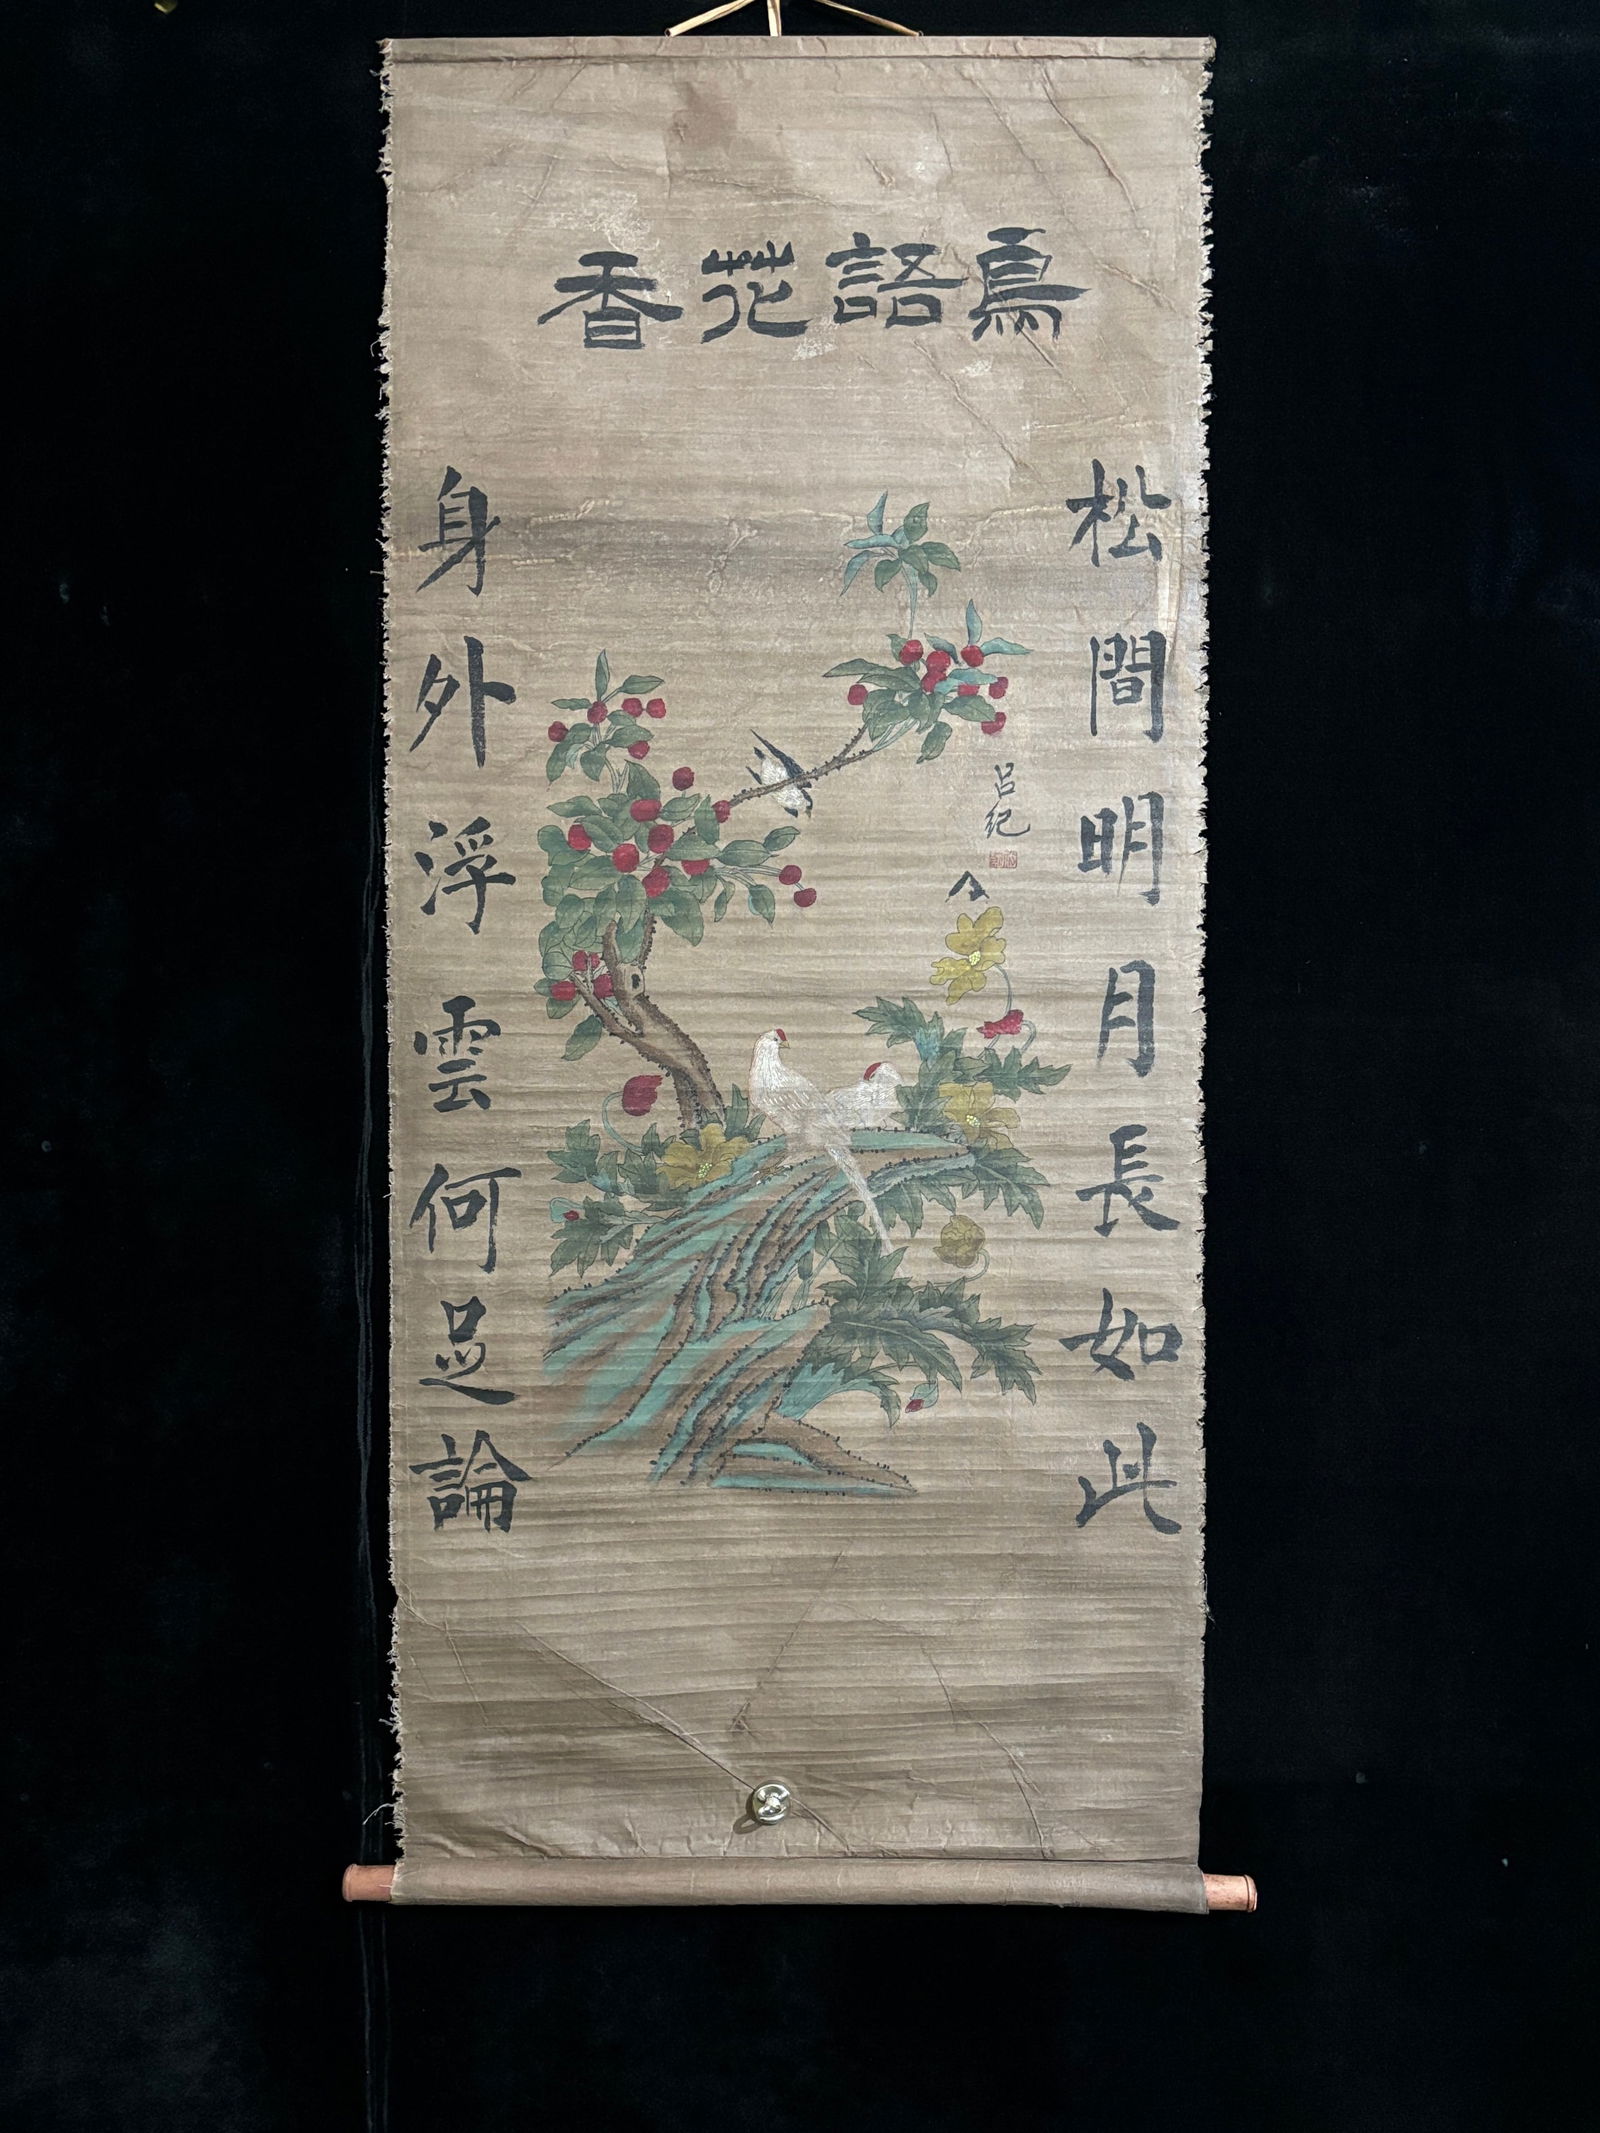 鳥語花香
松間明月長如此
身外浮雲何足論
呂紀